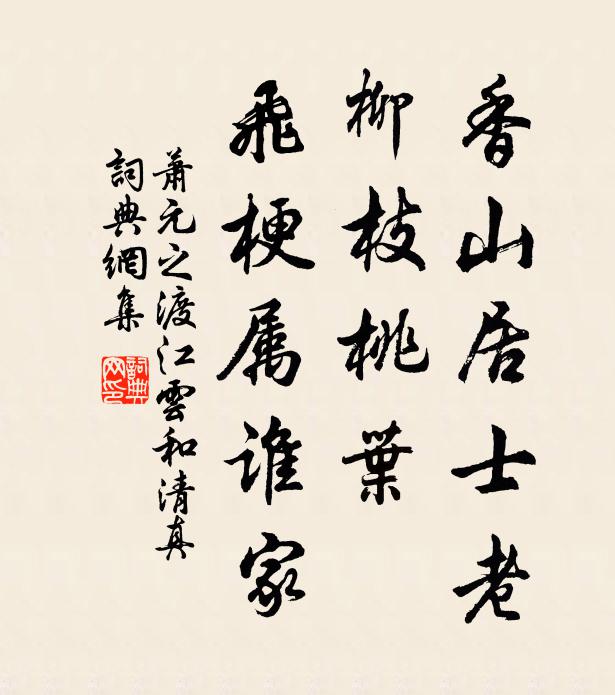 香山居士老
柳枝桃葉
飛梗属誰家
蕭元之渡江雲和清真
詞典網集
詞典
网印